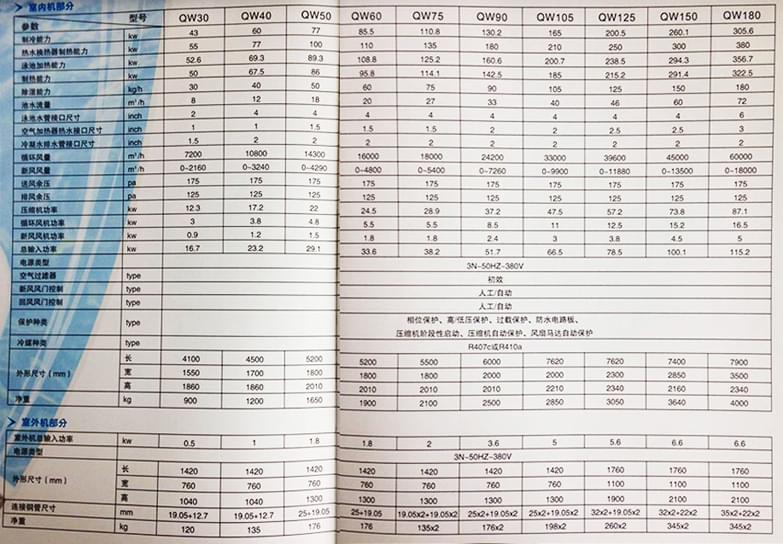 室内机部分
型号 QW30 QW40 QW50 QW60 QW75 QW90 QW105 QW125 QW150 QW180
参数
制冷能力 kw 43 60 77 85.5 110.8 130.2 165 200.5 260.1 305.6
热水换热器制热能力 kw 55 77 100 110 135 180 210 250 300 380
泳池加热能力 kw 52.6 69.3 89.3 108.8 125.2 160.6 200.7 238.5 294.3 356.7
制热能力 kw 50 67.5 86 95.8 114.1 142.5 185 215.2 291.4 322.5
除湿能力 kg/h 30 40 50 60 75 90 105 125 150 180
池水流量 m³/h 8 12 18 20 27 33 40 46 60 72
泳池水管接口尺寸 inch 2 4 4 4 4 4 4 4 4 6
空气加热器热水接口尺寸 inch 1 1 1.5 1.5 1.5 2 2 2.5 2.5 3
冷凝水排水管接口尺寸 inch 1.5 2 2 2 2 2 2 2 2 2
循环风量 m³/h 7200 10800 14300 16000 18000 24200 33000 39600 45000 60000
新风风量 m³/h 0~2160 0~3240 0~4290 0~4800 0~5400 0~7260 0~9900 0~11880 0~13500 0~18000
送风余压 pa 175 175 175 175 175 175 175 175 175 175
排风余压 pa 125 125 125 125 125 125 125 125 125 125
压缩机功率 kw 12.3 17.2 22 24.5 28.9 37.2 47.5 57.2 73.8 87.1
循环风机功率 kw 3 3.8 4.8 5.5 5.5 8.5 11 12.5 15.2 16.5
新风风机功率 kw 0.9 1.2 1.5 1.8 1.8 2.4 3 3.8 4.5 5
总输入功率 kw 16.7 23.2 29.1 33.6 38.2 51.7 66.5 78.5 100.1 115.2
电源类型 3N-50HZ-380V
空气过滤器 type 初效
新风风门控制 type 人工/自动
回风风门控制 type 人工/自动
保护种类 type 相位保护、高/低压保护、过载保护、防水电路板、
压缩机阶段性启动、压缩机自动保护、风扇马达自动保护
冷媒种类 type R407c或R410a
外形尺寸(mm) 长 4100 4500 5200 5200 5500 6000 7620 7620 7400 7900
宽 1550 1700 1800 1800 1800 2000 2000 2300 2850 3500
高 1860 1860 2010 2010 2010 2010 2210 2340 2160 2340
净重 kg 900 1200 1650 1900 2100 2500 2850 3050 3640 4000
室外机部分
室外机总输入功率 kw 0.5 1 1.8 1.8 2 3.6 5 5.6 6.6 6.6
电源类型 3N-50HZ-380V
外形尺寸(mm) 长 1420 1420 1420 1420 1420 1420 1420 1760 1760 1760
宽 760 760 760 760 760 760 760 1100 1100 1100
高 1040 1040 1300 1300 1300 1300 1300 1900 2100 2100
连接铜管尺寸 mm 19.05+12.7 19.05+12.7 25+19.05 25+19.05 19.05x2+19.05x2 25x2+19.05x2 25x2+19.05x2 32x2+19.05x2 32x2+22x2 35x2+22x2
净重 kg 120 135 176 176 135x2 176x2 198x2 260x2 345x2 345x2